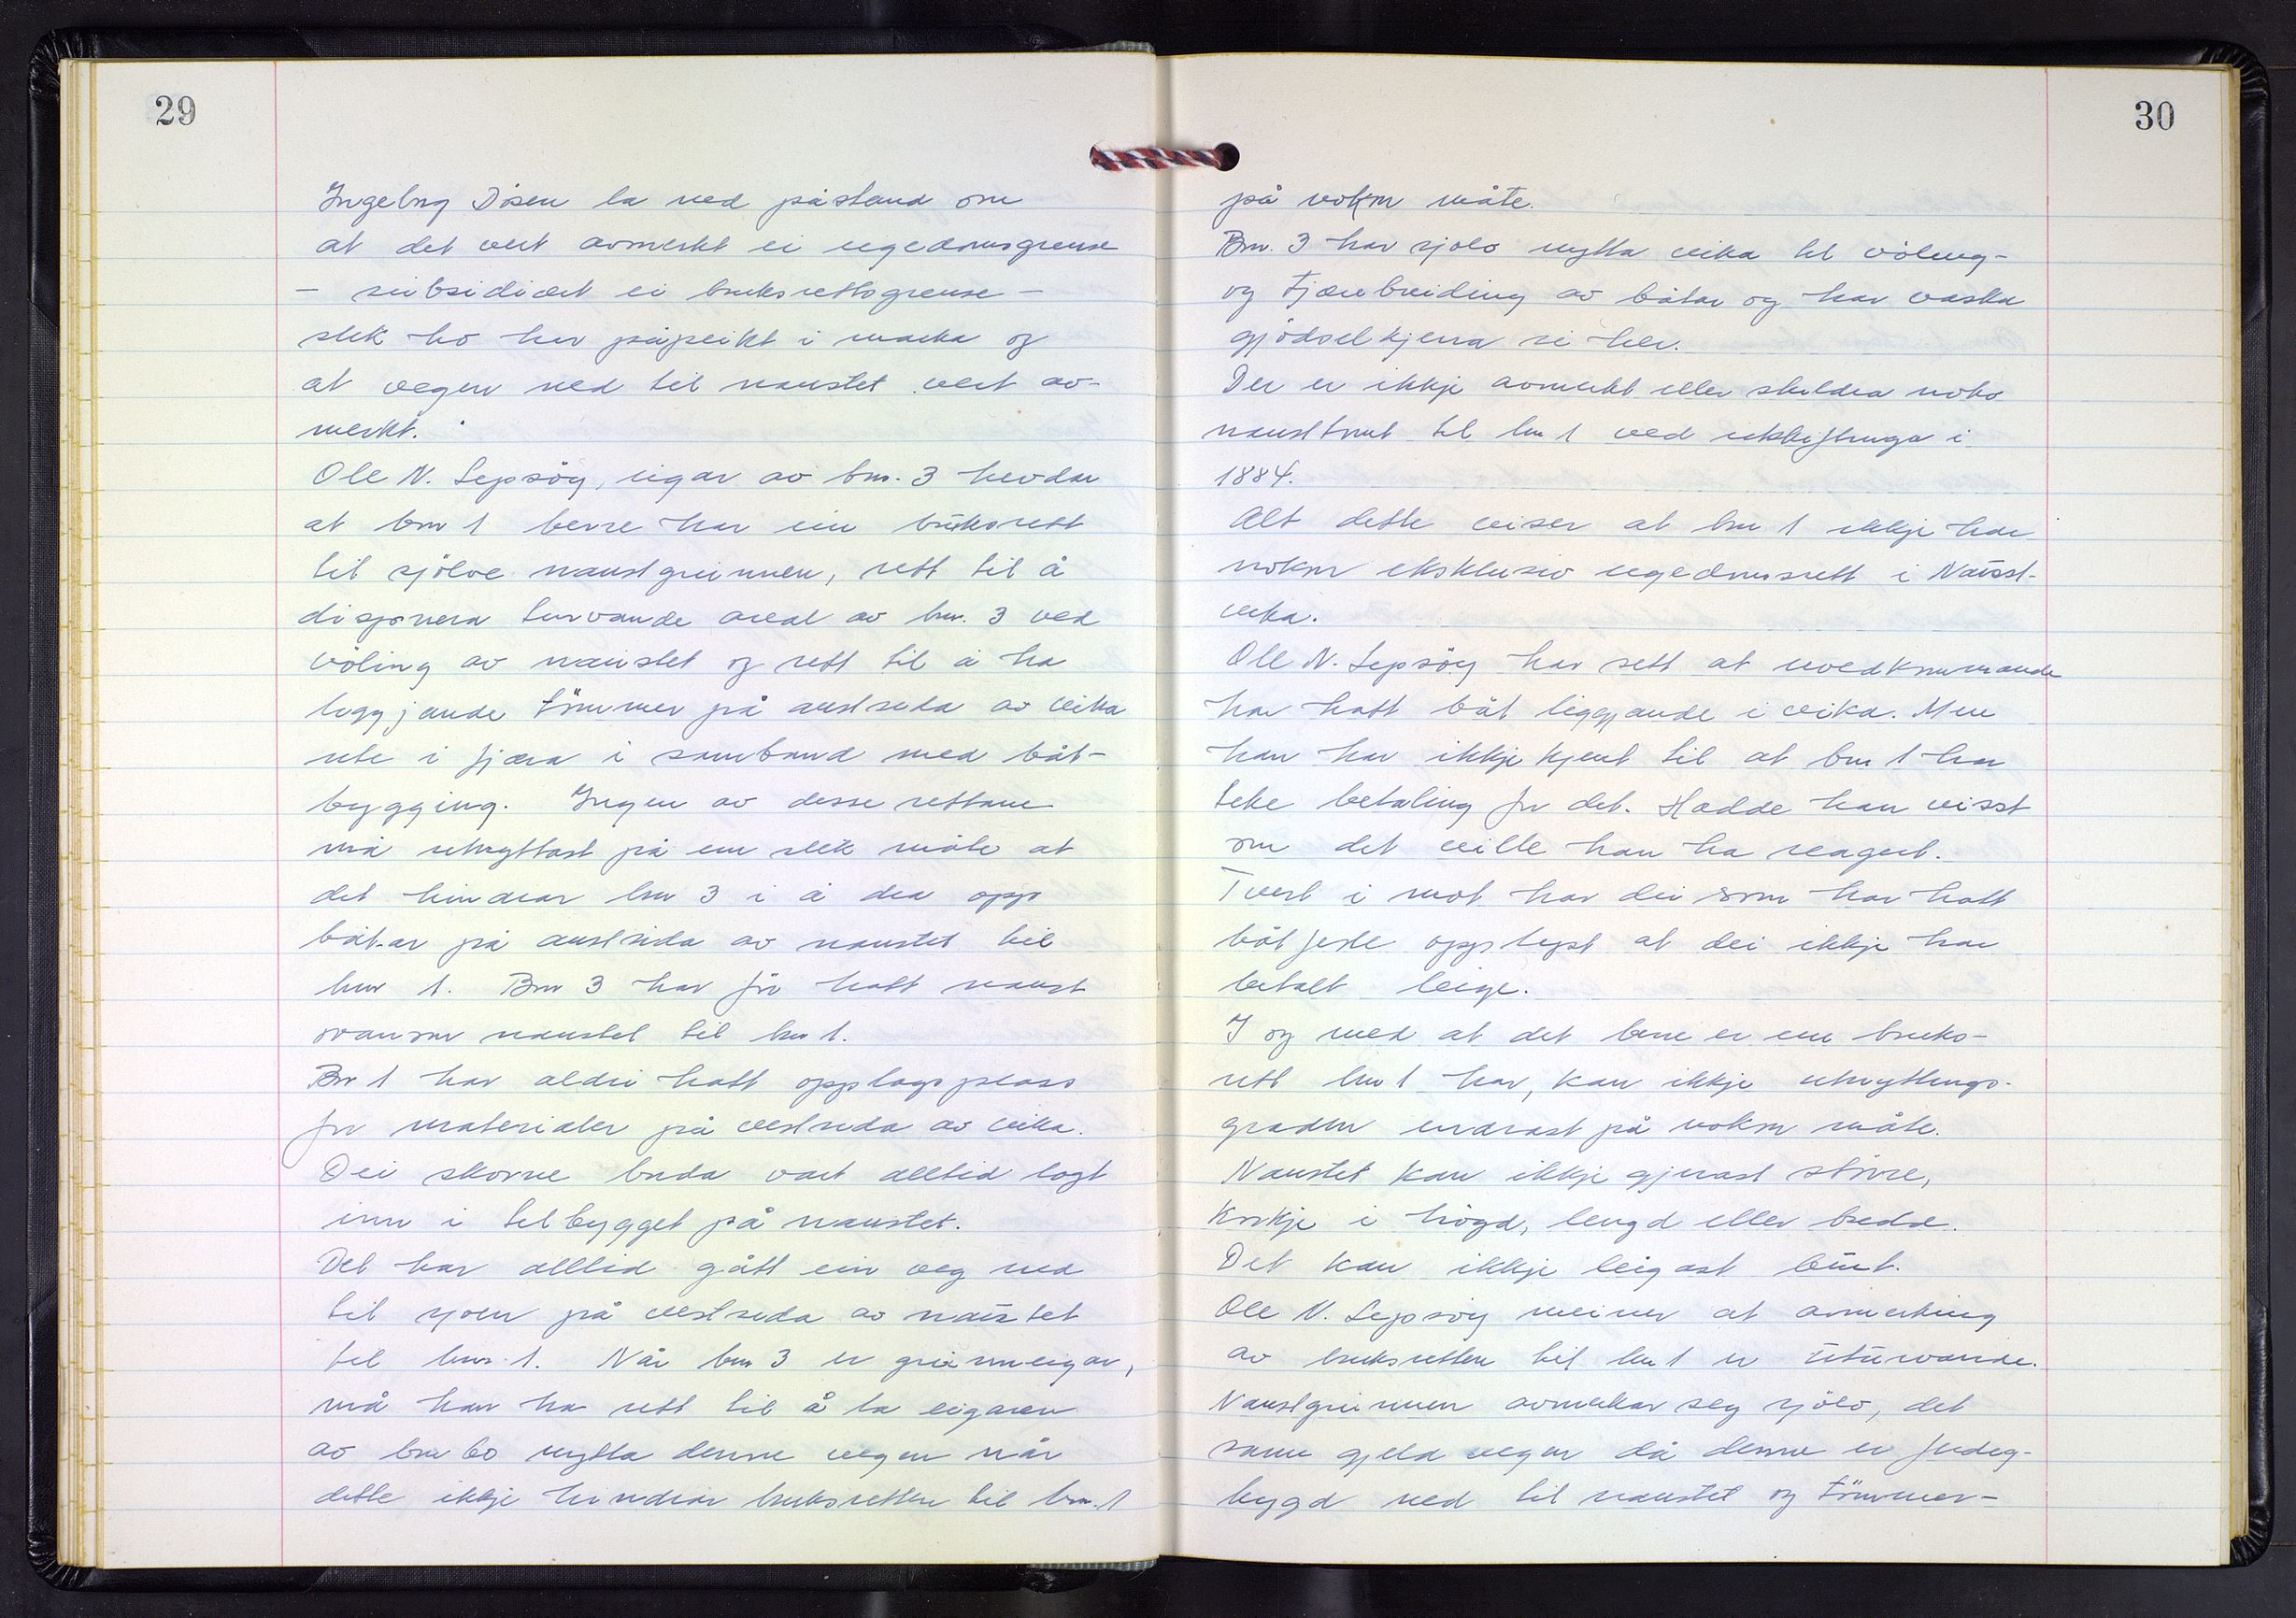 29
Ingebrg Døsen la ned påstand om
at det vert avmerkt ei eigedomsgrense
– subsidiært ei bruksrettsgrense –
slik ho her påpeikt i marka og
at vegen ned til naustet vert av-
merkt.
Ole N. Lepsøy, eigar av bnr. 3 hevdar
at bnr 1 berre har ein bruksrett
til sjölve naustgrunnen, rett til å
disponera turvande areal av bnr. 3 ved
völing av naustet og rett til å ha
liggjande tömmer på austsida av vika
ute i fjæra i samband med båt-
bygging. Ingen av desse rettane
må utnyttast på ein slik måte at
det hindrar bnr 3 i å dra opp
båtar på austsida av naustet til
bnr 1. Bnr 3 har för hatt naust
ovanom naustet til bnr 1.
Bnr 1 har aldri hatt opplagsplass
for materialer på vestsida av vika.
Dei skorne borda vart alltid lagt
inn i tilbygget på naustet.
Det har alltid gått ein veg ned
til sjoen på vestsida av naustet
til bnr. 1. Når bnr 3 er grunneigar,
må han ha rett til å la eigaren
av bnr 60 nytta denne vegen når
dette ikkje hindrar bruksretten til bnr. 1
30
på nokon måte.
Bnr. 3 har sjølv nytta vika til völing-
og tjærebreiding av båtar og har vaska
gjödselkjerra si her.
Der er ikkje avmerkt eller skildra noko
nausttomt til bnr 1 ved utskiftinga i
1884.
Alt dette viser at bnr 1 ikkje har
nokon eksklusiv eigedomsrett i Naust-
vika.
Ole N. Lepsöy har sett at uvedkommande
har hatt båt liggjande i vika. Men
han har ikkje kjent til at bnr 1 har
teke betaling for det. Hadde han visst
om det ville han ha reagert.
Tvert i mot har dei som har hatt
båt der opplyst at dei ikkje har
betalt leige.
I og med at det berre er ein bruks-
rett bnr 1 har, kan ikkje utnyttings-
graden endrast på nokon måte.
Naustet kan ikkje gjerast större,
korkje i högd, lengd eller bredde.
Det kan ikkje leigast bort.
Ole N. Lepsöy meiner at avmerking
av bruksretten til bnr 1 er uturvande.
Naustgrunnen avmerkar seg sjölv, det
same gjeld vegen då denne er ferdig-
bygd ned til naustet og tömmer-